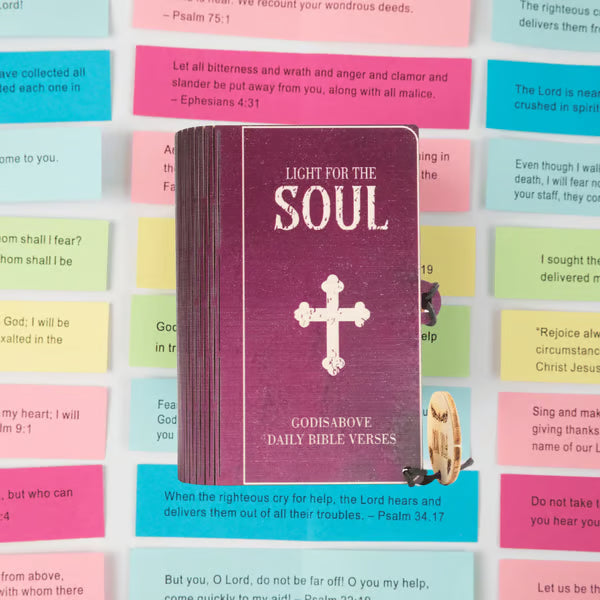 Lord!
is near. We recount your wondrous deeds.
– Psalm 75:1
The righteous c
delivers them fro
ave collected all
ted each one in
Let all bitterness and wrath and anger and clamor and
slander be put away from you, along with all malice.
– Ephesians 4:31
The Lord is near
crushed in spirit
ome to you.
ning in
the
the
Fa
Even though I walk
death, I will fear no
your staff, they com
LIGHT FOR THE
SOUL
hom shall I fear?
whom shall I be
19
I sought the
delivered m
God; I will be
exalted in the
God
in tr
help
"Rejoice alw
circumstanc
Christ Jesus
my heart; I will
lm 9:1
Fear
God
you
GODISABOVE
DAILY BIBLE VERSES
Sing and mak
giving thanks
name of our L
, but who can
:4
When the righteous cry for help, the Lord hears and
delivers them out of all their troubles. – Psalm 34.17
Do not take t
you hear you
from above,
with whom there
But you, O Lord, do not be far off! O you my help,
come quickly to my aid! – Psalm 22:19
Let us be th